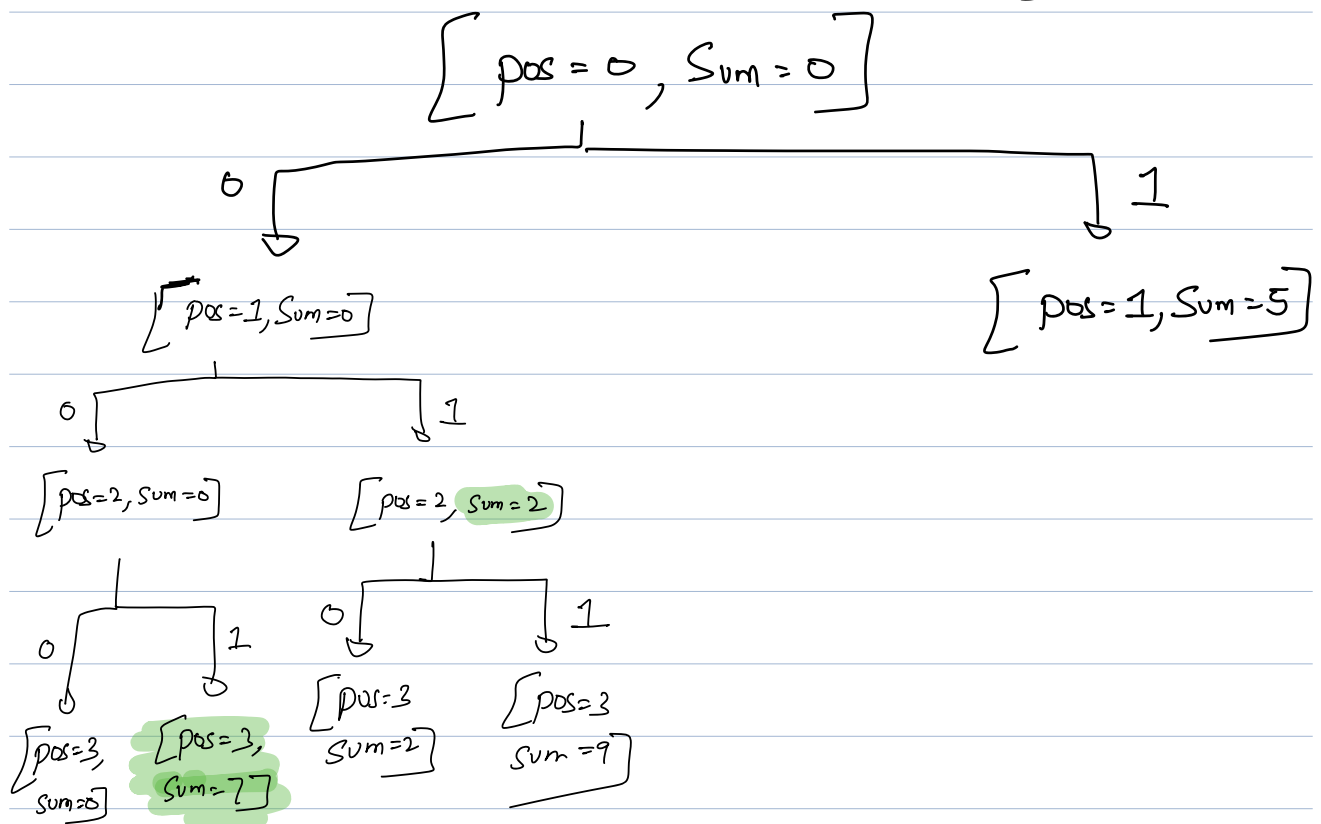 [pos=0, Sum=0]
0 1
[pos=1, Sum=0] [pos=1, Sum=5]
0 1
[pos=2, sum=0] [pos=2, sum=2]
0 1 0 1
[pos=3, sum=0] [pos=3, sum=7] [pos=3 sum=2] [pos=3 sum=9]